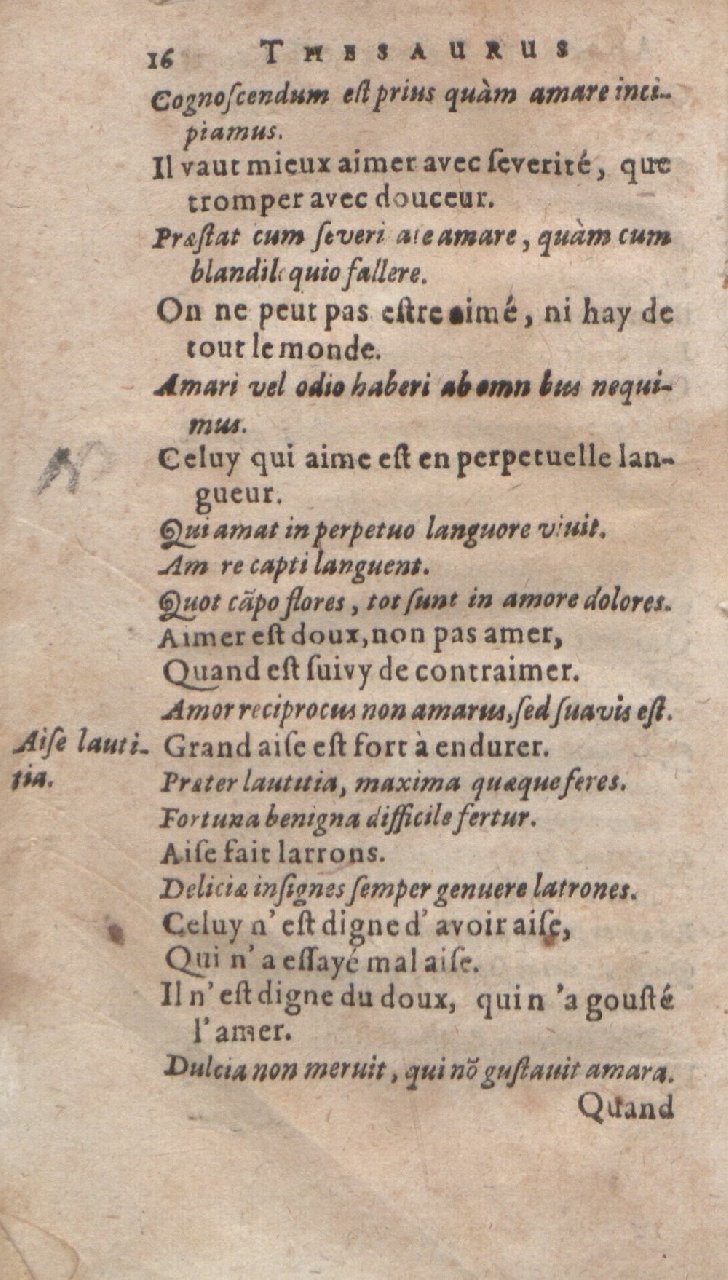 16 THESAURUS
Cognoſcendum eſt prius quàm amare inci-
piamus.
Il vaut mieux aimer avec ſeverité, que
tromper avec douceur.
Præſtat cum ſeveri ate amare, quàm cum
blandil quio fallere.
On ne peut pas eſtre aimé, ni hay de
tout le monde.
Amari vel odio haberi ab omn bus nequi-
mus.
Celuy qui aime eſt en perpetuelle lan-
gueur.
Qui amat in perpetuo languore viuit.
Am re capti languent.
Quot cãpo flores, tot ſunt in amore dolores.
Aimer eſt doux, non pas amer,
Quand eſt ſuivy de contraimer.
Amor reciprocus non amarus, ſed ſuavis eſt.
Aiſe lauti-
tia.
Grand aiſe eſt fort à endurer.
Præter lautitia, maxima quæque feres.
Fortuna benigna difficile fertur.
Aiſe fait larrons.
Deliciæ inſignes ſemper genuere latrones.
Celuy n'eſt digne d'avoir aiſe,
Qui n'a eſſayé mal aiſe.
Il n'eſt digne du doux, qui n'a gouſté
l'amer.
Dulcia non meruit, qui nõ guſtauit amara.
Quand